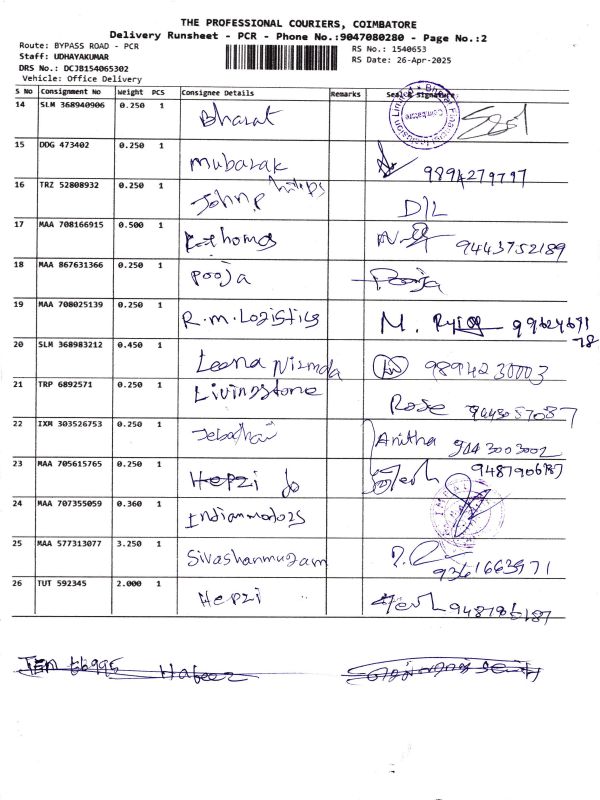 THE PROFESSIONAL COURIERS, COIMBATORE
Delivery Runsheet - PCR - Phone No.:9047080280 - Page No.:2
Route: BYPASS ROAD - PCR RS No.: 1540653
Staff: UDHAYAKUMAR RS Date: 26-Apr-2025
DRS No.: DCJ8154065302
Vehicle: Office Delivery
S No Consignment No Weight PCS Consignee Details Remarks Seal & Signature
14 SLM 368940906 0.250 1 Bharat
15 DDG 473402 0.250 1 mubarak 9894279797
16 TRZ 52808932 0.250 1 John p D/L
17 MAA 708166915 0.500 1 thomas 9443752189
18 MAA 867631366 0.250 1 pooja Pooja
19 MAA 708025139 0.250 1 R.m.Logistics M.
78
20 SLM 368983212 0.450 1 Leena Nirmala 9894230003
21 TRP 6892571 0.250 1 Livingstone Rose
22 IXM 303526753 0.250 1 Anitha 9443003002
23 MAA 705615765 0.250 1 Hepzi do
24 MAA 707355059 0.360 1 Indian motors
25 MAA 577313077 3.250 1 Sivashanmugam 9361663971
26 TUT 592345 2.000 1 Hepzi
Hafeez